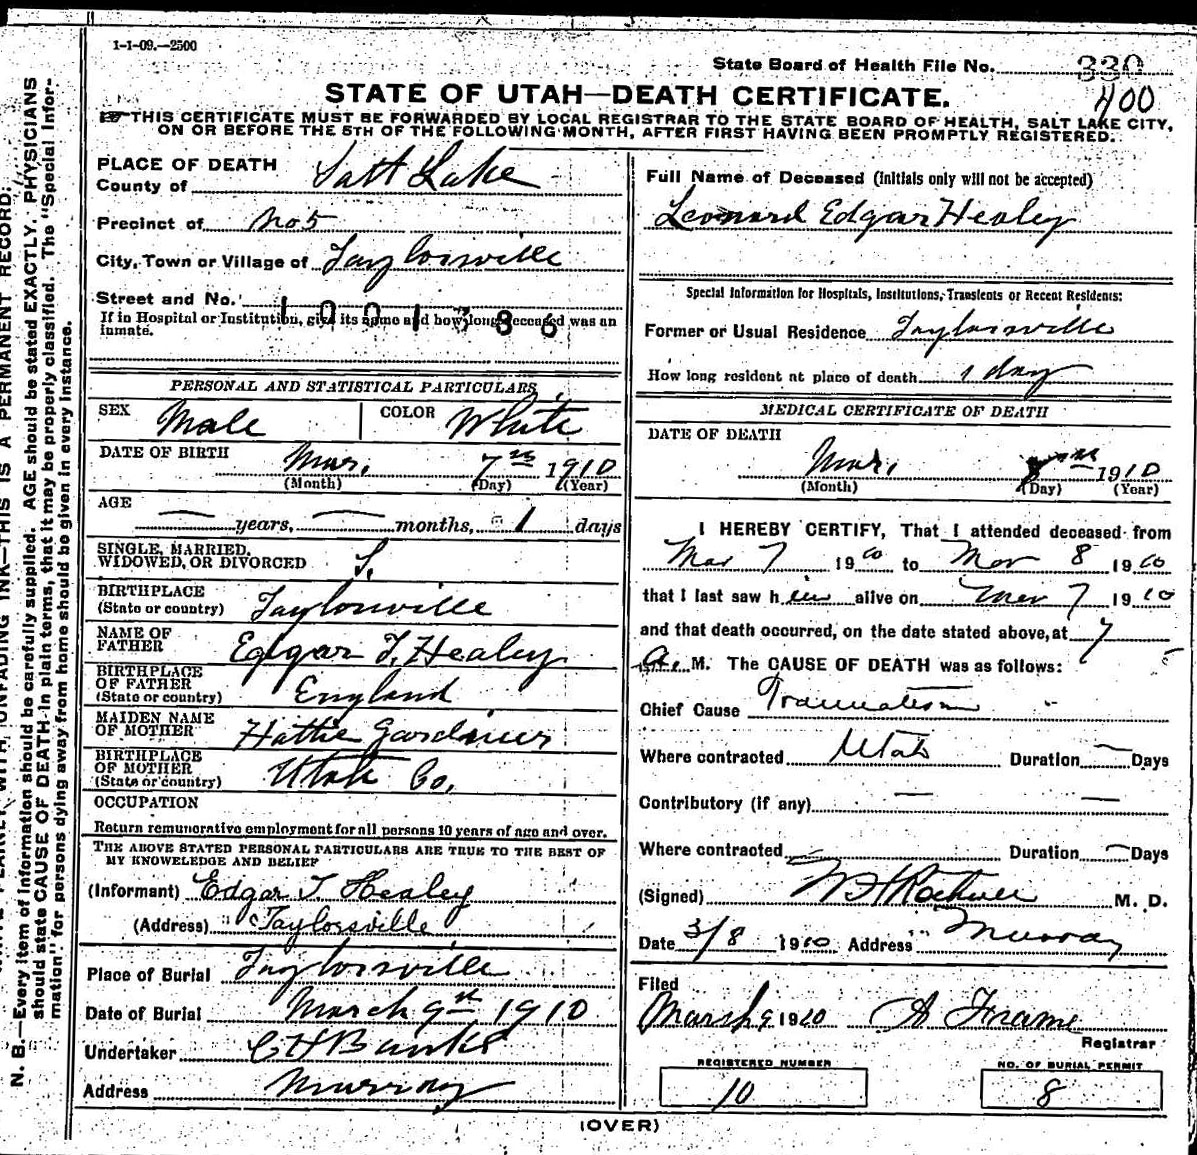 1-1-09.—2500
State Board of Health File No. 330
400
STATE OF UTAH—DEATH CERTIFICATE.
THIS CERTIFICATE MUST BE FORWARDED BY LOCAL REGISTRAR TO THE STATE BOARD OF HEALTH, SALT LAKE CITY,
ON OR BEFORE THE 5TH OF THE FOLLOWING MONTH, AFTER FIRST HAVING BEEN PROMPTLY REGISTERED.
PLACE OF DEATH
County of Salt Lake
Precinct of No 5
City, Town or Village of Taylorsville
Street and No.
1001786
If in Hospital or Institution, give its name and how long deceased was an
inmate.
PERSONAL AND STATISTICAL PARTICULARS
SEX Male COLOR White
DATE OF BIRTH Mar. 7th 1910
(Month) (Day) (Year)
AGE
— years, — months, 1 days
SINGLE, MARRIED,
WIDOWED, OR DIVORCED S.
BIRTHPLACE
(State or country) Taylorsville
NAME OF
FATHER Edgar T. Healey
BIRTHPLACE
OF FATHER
(State or country) England
MAIDEN NAME
OF MOTHER Hattie Gardiner
BIRTHPLACE
OF MOTHER
(State or country) Utah Co.
OCCUPATION
Return remunerative employment for all persons 10 years of age and over.
THE ABOVE STATED PERSONAL PARTICULARS ARE TRUE TO THE BEST OF
MY KNOWELEDGE AND BELIEF
(Informant) Edgar T. Healey
(Address) Taylorsville
Place of Burial Taylorsville
Date of Burial March 9th 1910
Undertaker C H Banks
Address Murray
Full Name of Deceased (Initials only will not be accepted)
Leonard Edgar Healey
Special Information for Hospitals, Institutions, Transients or Recent Residents:
Former or Usual Residence Taylorsville
How long resident at place of death 1 day
MEDICAL CERTIFICATE OF DEATH
DATE OF DEATH
Mar. 1910
(Month) (Day) (Year)
I HEREBY CERTIFY, That I attended deceased from
Mar 7 1910 to Mar 8 1910
that I last saw him alive on Mar 7 1910
and that death occurred, on the date stated above, at 7
A. M. The CAUSE OF DEATH was as follows:
Chief Cause Traumatism
Where contracted Utah Duration — Days
Contributory (if any) — —
Where contracted — Duration — Days
(Signed) M. D.
Date 3/8 1910 Address Murray
Filed
March 9 1910 A Frame
Registrar
REGISTERED NUMBER
10
NO. OF BURIAL PERMIT
8
(OVER)
N. B.—Every item of information should be carefully supplied. AGE should be stated EXACTLY. PHYSICIANS
should state CAUSE OF DEATH in plain terms, that it may be properly classified. The "Special Infor-
mation" for persons dying away from home should be given in every instance.
INK—THIS IS A PERMANENT RECORD.